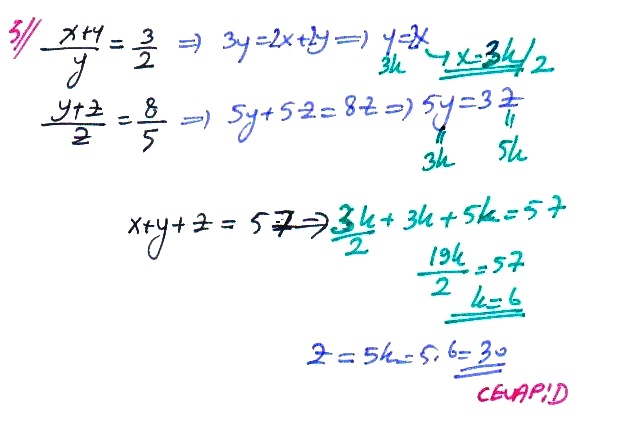 5// x+y/y = 3/2 ⇒ 3y=2x+2y ⇒ y=2x
3k → x=3k/2
y+z/z = 8/5 ⇒ 5y+5z=8z ⇒ 5y=3z
" "
3k 5k
x+y+z = 57 ⇒ 3k/2 + 3k + 5k = 57
19k/2 = 57
k=6
z = 5k = 5.6 = 30
CEVAP:D